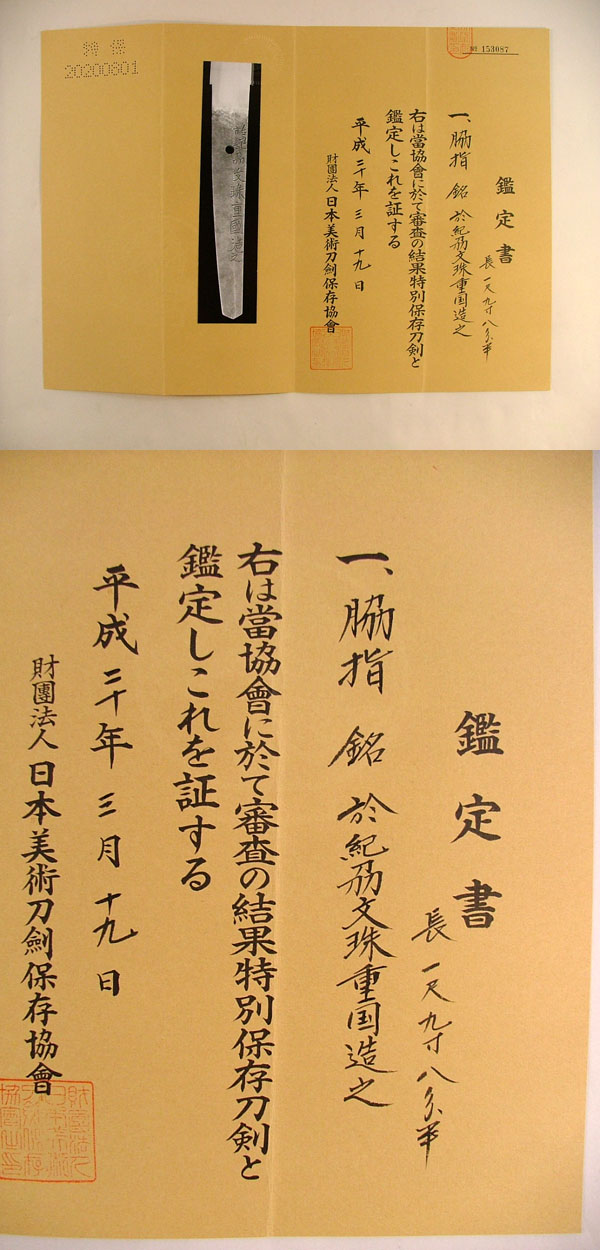 № 153087
鑑定書
長一尺九寸八分半
一、脇指 銘 於紀刕文珠重国造之
右は當協會に於て審査の結果特別保存刀剣と
鑑定しこれを証する
平成二十年三月十九日
財團法人 日本美術刀劍保存協會
特保
20200601
鑑定書
長一尺九寸八分半
一、脇指 銘 於紀刕文珠重国造之
右は當協會に於て審査の結果特別保存刀剣と
鑑定しこれを証する
平成二十年三月十九日
財團法人 日本美術刀劍保存協會